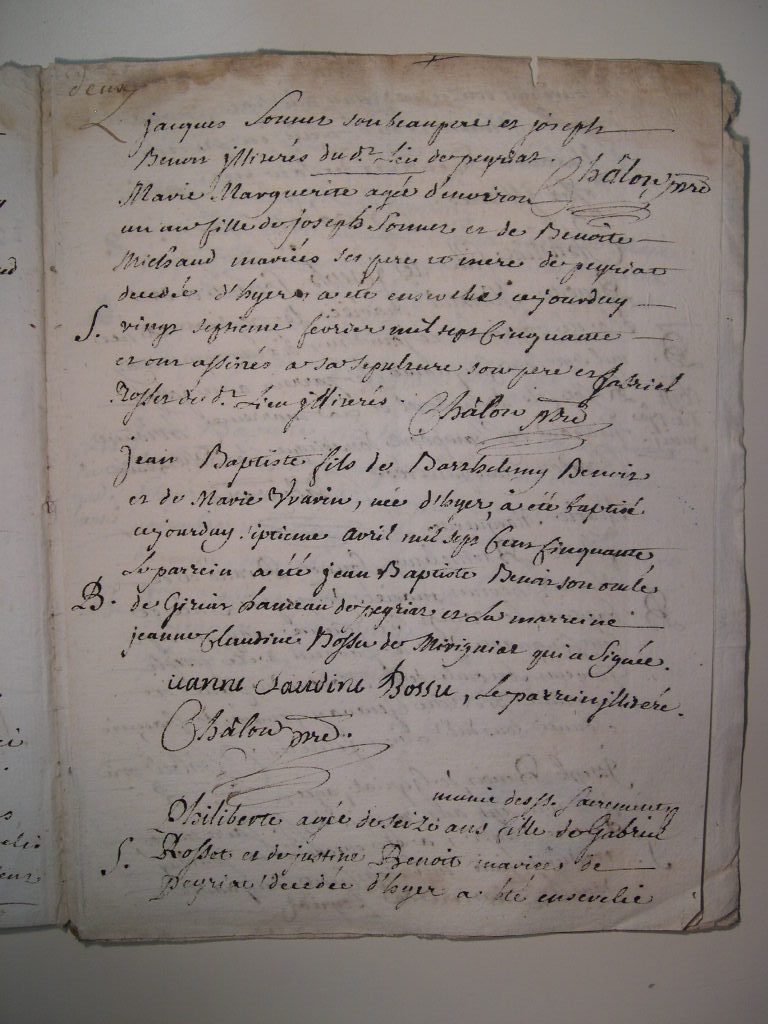 deux
jacques Sonner son beaupere et joseph
Benoit jlliterés du dt. Lieu de peyriat.
Châlon ptre
Marie Marguerite agée d'environ
un an fille de joseph Sonner et de Benoîte
Michaud mariés ses pere et mere de peyriat
decedée d'hyer a été ensevelie cejourduy
S. vingt septieme février mil sept Cinquante
et ont assistés a sa sepulture son pere et gabriel
Rosset du dt. Lieu jlliterés. Châlon ptre
jean Baptiste fils de Barthelemy Benoit
et de Marie Vvarin, née d'hyer, a été baptisé
cejourduy septieme avril mil sept Cent Cinquante
Le parrein a été jean Baptiste Benoit son oncle
B. de Giriat hameau de peyriat et La marreine
jeanne Claudine Bossu de Mérigniat qui a Signée.
ieanne Claudine Bossu, Le parrein jlliteré.
Châlon ptre.
munie des sts. Sacrements
Philiberte agée de seize ans fille de Gabriel
S. Rosset et de justine Benoit mariés de
Peyriat decedée d'hyer a été ensevelie